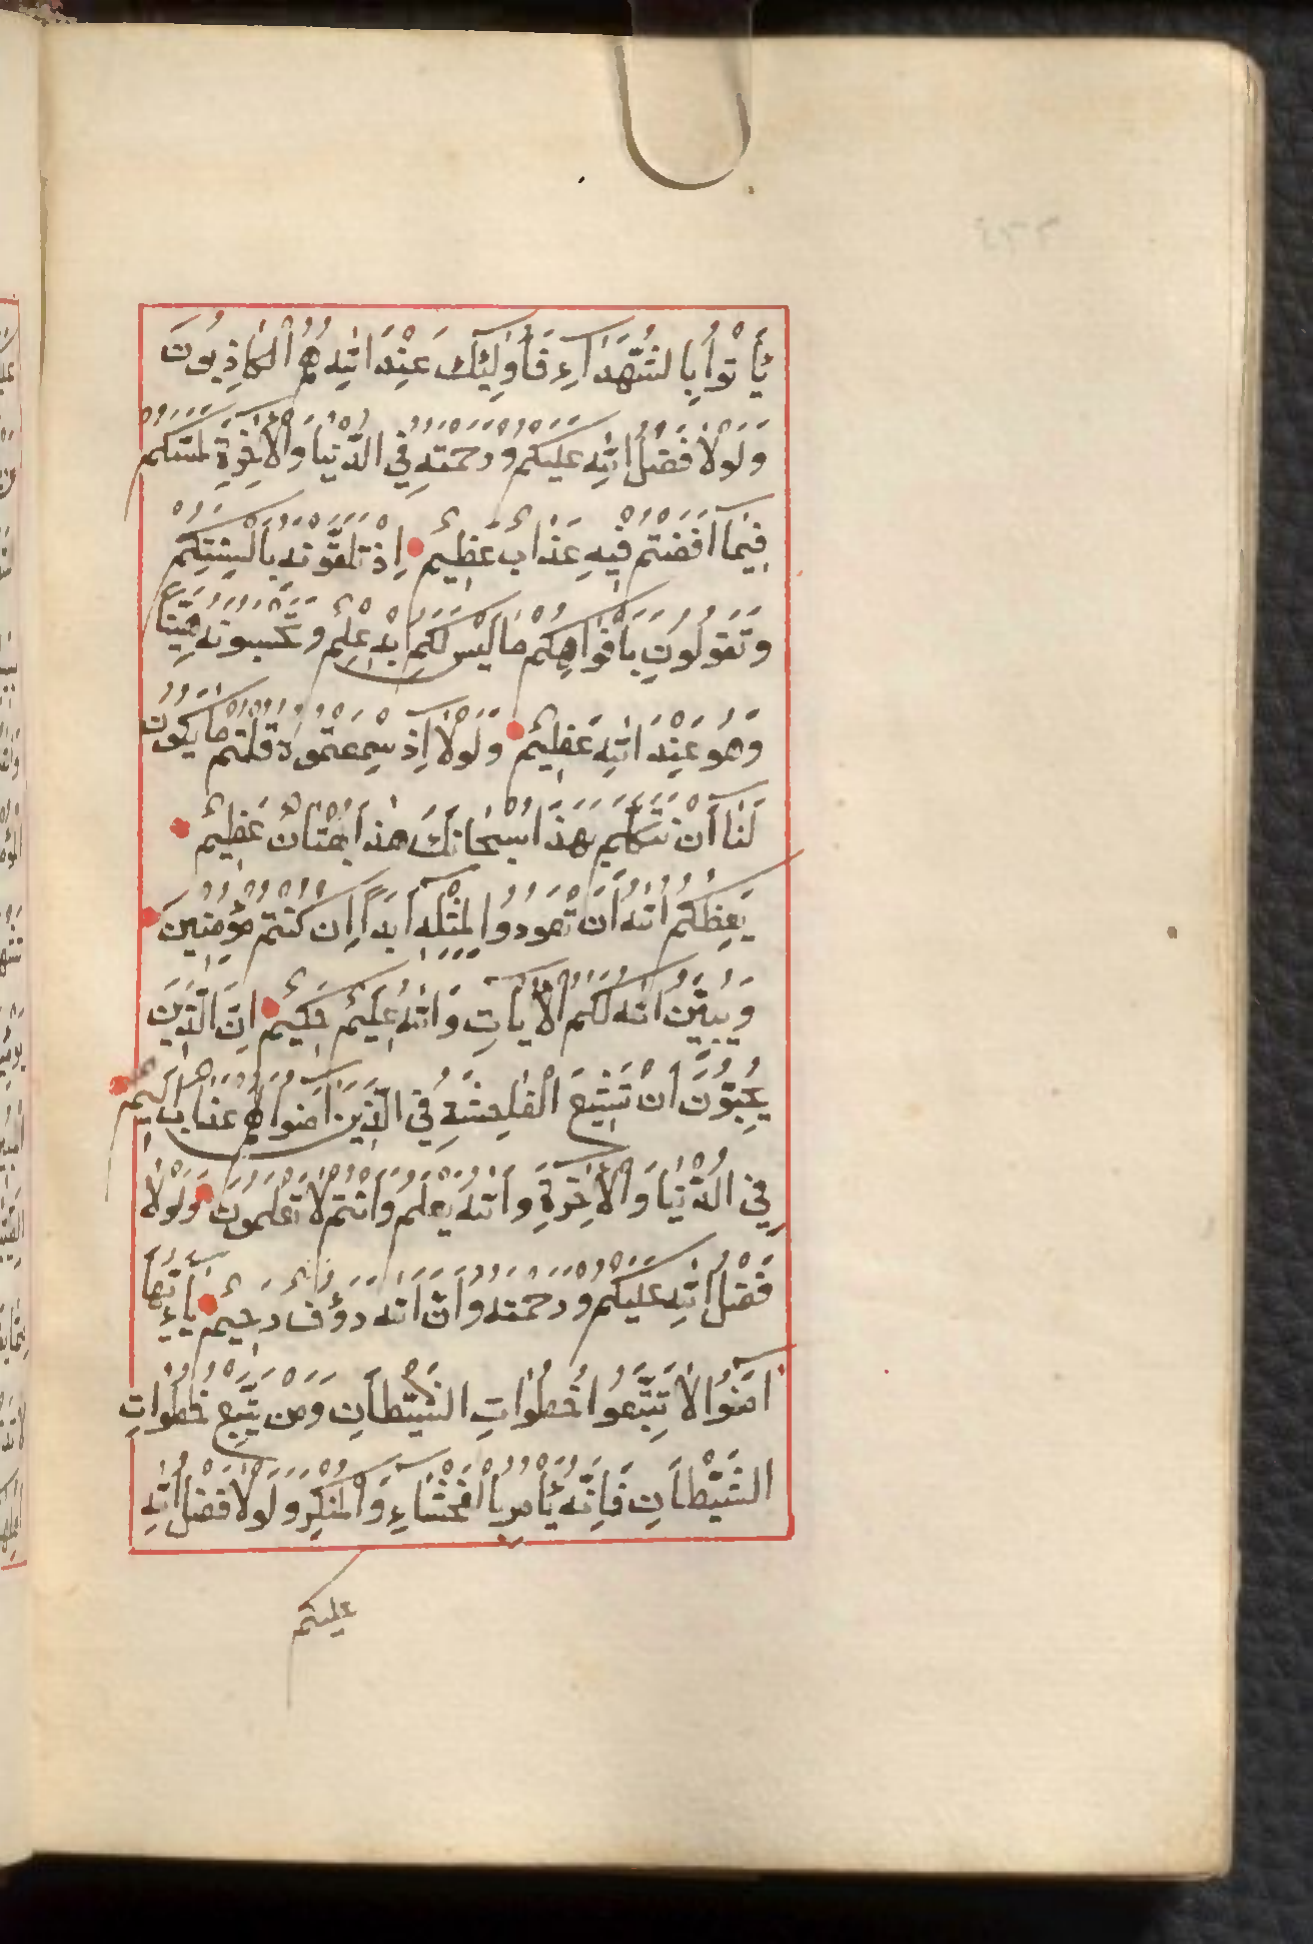 يَأْتُوا بِالشُّهَدَاءِ فَأُولَئِكَ عِنْدَ اللهِ هُمُ الْكَاذِبُونَ
وَلَوْلَا فَضْلُ اللهِ عَلَيْكُمْ وَرَحْمَتُهُ فِي الدُّنْيَا وَالْآخِرَةِ لَمَسَّكُمْ
فِيمَا أَفَضْتُمْ فِيهِ عَذَابٌ عَظِيمٌ إِذْ تَلَقَّوْنَهُ بِأَلْسِنَتِكُمْ
وَتَقُولُونَ بِأَفْوَاهِكُمْ مَا لَيْسَ لَكُمْ بِهِ عِلْمٌ وَتَحْسَبُونَهُ هَيِّنًا
وَهُوَ عِنْدَ اللهِ عَظِيمٌ وَلَوْلَا إِذْ سَمِعْتُمُوهُ قُلْتُمْ مَا يَكُونُ
لَنَا أَنْ نَتَكَلَّمَ بِهَذَا سُبْحَانَكَ هَذَا بُهْتَانٌ عَظِيمٌ
يَعِظُكُمُ اللهُ أَنْ تَعُودُوا لِمِثْلِهِ أَبَدًا إِنْ كُنْتُمْ مُؤْمِنِينَ
وَيُبَيِّنُ اللهُ لَكُمُ الْآيَاتِ وَاللهُ عَلِيمٌ حَكِيمٌ إِنَّ الَّذِينَ
يُحِبُّونَ أَنْ تَشِيعَ الْفَاحِشَةُ فِي الَّذِينَ آمَنُوا لَهُمْ عَذَابٌ أَلِيمٌ
فِي الدُّنْيَا وَالْآخِرَةِ وَاللهُ يَعْلَمُ وَأَنْتُمْ لَا تَعْلَمُونَ وَلَوْلَا
فَضْلُ اللهِ عَلَيْكُمْ وَرَحْمَتُهُ وَأَنَّ اللهَ رَؤُفٌ رَحِيمٌ يَاأَيُّهَا
آمَنُوا لَا تَتَّبِعُوا خُطُوَاتِ الشَّيْطَانِ وَمَنْ يَتَّبِعْ خُطُوَاتِ
الشَّيْطَانِ فَإِنَّهُ يَأْمُرُ بِالْفَحْشَاءِ وَالْمُنْكَرِ وَلَوْلَا فَضْلُ اللهِ
عليكم